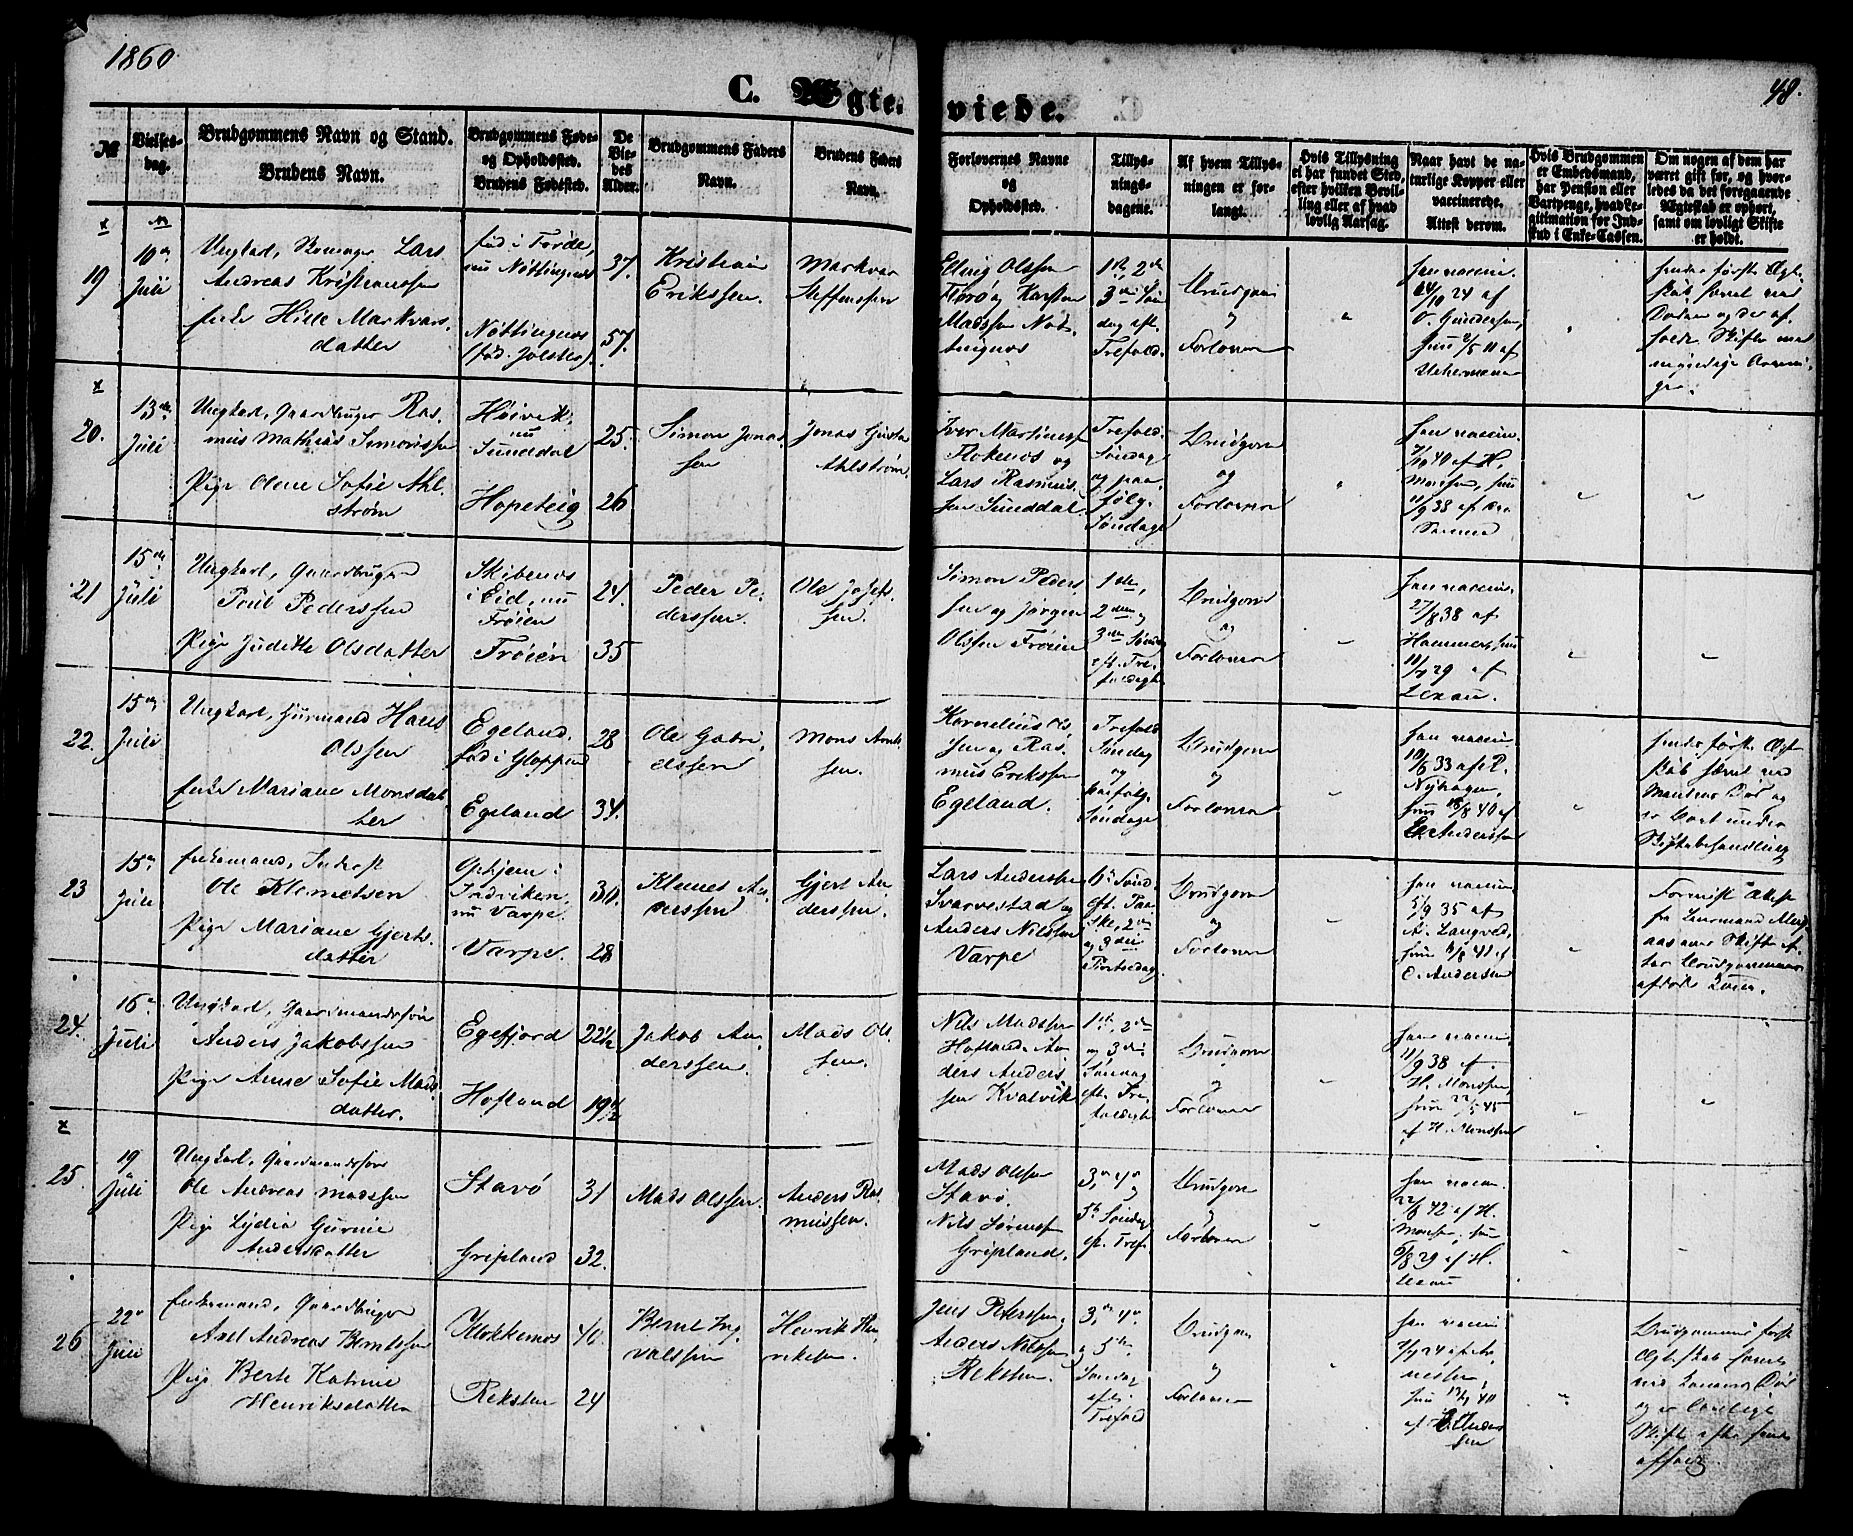 1860
48.
C. Ægteviede.
№
Vielses-
dag.
Brudgommens Navn og Stand.
Brudens Navn.
Brudgommens Føde-
og Opholdssted.
Brudens Fødested.
De
Vie-
des
Alder.
Brudgommens Faders
Navn.
Brudens Faders
Navn.
Forlovernes Navne
og
Opholdssted.
Tillys-
nings-
dagene.
Af hvem Tillys-
ningen er for-
langt.
Hvis Tillysning
ei har fundet Sted,
efter hvilken Bevil-
ling eller af hvad
lovlig Aarsag.
Naar havt de na-
turlige Kopper eller
vaccinerede.
Attest derom.
Hvis Brudgommen
er Embedsmand,
har Pension eller
Vartpenge, hvad Le-
gitimation for Ind-
skud i Enke-Cassen.
Om nogen af dem har
været gift før, og hvor-
ledes da det foregaaende
Ægteskab er ophørt,
samt om lovligt Skifte
er holdt.
19
10de
Juli
Ungkarl, Lars
Andreas Kristiansen
Enke Hille Markvars-
datter
fød i Førde,
nu Nøttingnes
Nøttingnes
(fød. Jølster)
37.
57.
Kristian
Erikssen.
Markvar
Steffenssen
Elling Olssen
Florø og Karsten
Madssen Nøt-
tingnes
1ste, 2den
3die Søn-
dag eft.
Trefold.
Brudgom
og
Forlovere
han vaccin.
24 af
O. Gundersen,
hun 2/5 11 af
20.
13de
Juli
Ungkarl, Gaardbruger Ras-
mus Mathias Simonssen
Pige Oline Sofie Ahl-
strøm
Høivik,
nu
Sunddal
Hopeteig
25.
26
Simon Jonas-
sen
Jonas Gustav
Ahlstrøm.
Iver Martinssen
Flokenes og
Lars Rasmus-
sen Sunddal.
Trefold.
Søndag
og paa-
følg.
Søndage
Brudgom
og
Forlovere
han vaccin.
40 af H.
Monssen, hun
11/9 38 af
21
15de
Juli
Ungkarl, Gaardbruger
Poul Pederssen
Pige Judithe Olsdatter
Skibenes
i Eid, nu
Frøien
Frøien
24.
35
Peder Pe-
derssen.
Ole Josef-
sen.
Simon Peders-
sen og Jørgen
Olssen Frøien
1ste,
2den og
3die Søndag
eft. Tre-
foldigh.
Brudgom
og
Forlovere
han vaccin.
27/8 38 af
Hammer, hun
11/7 29 af
Lexau.
22.
15de
Juli
Ungkarl, Huusmand Hans
Olssen
Enke Mariane Monsdat-
ter
Egeland,
fød i Gloppen
Egeland
28
34.
Ole Gabri-
elssen
Mons Arnt-
sen.
Kornelius Ols-
sen og Ras-
mus Erikssen
Egeland.
Trefold.
Søndag
og
paafølg.
Søndage
Brudgom
og
Forlovere
han vaccin.
10/6 33 af P.
Nyhagen,
hun 18/8 40 af
E. Anderssen
hendes første Ægte-
skab hævet ved
Mandens Død og
er Boet under
Skiftebehandling
23
15de
Juli
Enkemand, Inderst
Ole Klemetsen
Pige Mariane Gjerts-
datter
Ophjem i
Indviken,
nu Varpe.
Varpe.
30.
28
Klemet An-
derssen
Gjert An-
derssen.
Lars Anderssen
Svarvestad og
Anders Nilssen
Varpe
6te Sønd.
eft. Paa-
ske, 2den
og 3die
Pintsedag
Brudgom
og
Forlovere
han vaccin.
5/9 35 af
A. Langved,
hun 6/8 41 af
E. Andersen
Forevist Attest
fra Lensmand
om Skifte ef-
ter Brudgommens
afdøde Kone.
24.
16de
Juli
Ungkarl, Gaardmandssøn
Anders Jakobssen
Pige Anne Sofie Mads-
datter.
Egefjord
Hofland
22½
19½
Jakob An-
derssen.
Mads Ol-
sen.
Nils Madssen
Hofland, An-
ders Anders-
sen Kvalvik
1ste, 2den
og 3die
Søndag
eft. Tre-
foldigh.
Brudgom
og
Forlovere
han vaccin.
11/9 38 af
H. Monssen,
hun 22/5 45
af H. Monssen
25.
19
Juli
Ungkarl, Gaardmandssøn
Ole Andreas Madssen
Pige Lydia Gurine
Andersdatter
Stavø
Gripland
31
32.
Mads Olssen.
Anders Ras-
mussen.
Mads Olssen
Stavø,
Nils Sørenssen
Gripland.
3die, 4de
og
5te Søndag
eft. Tref.
Brudgom
og
Forlovere
han vaccin.
22/6 42 af H.
Monssen, hun
5/8 29 af H.
Lexau
26
22de
Juli
Enkemand, Gaardbruger
Axel Andreas Berntssen
Pige Berte Katrine
Henriksdatter
Klokkernes
Reksten
40.
24
Bernt Ing-
valssen
Henrik Hen-
rikssen.
Jens Peterssen,
Anders Nilssen
Reksten.
3die, 4de
og 5te
Søndag
efter
Trefold
Brudgom
og
Forlovere
han vaccin.
24 af
hun 40
af E. Anders-
sen
Brudgommens første
Ægteskab hævet
ved Konens Død
og er lovligt
Skifte efter hende
afholdt.